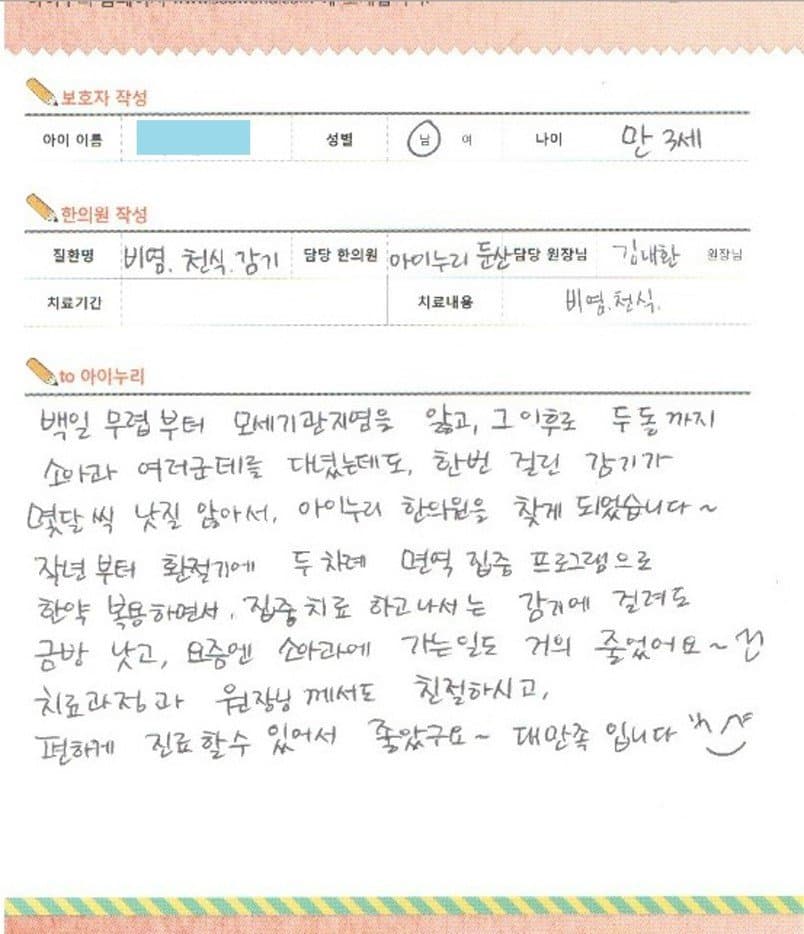 보호자 작성
아이 이름 성별 남 여 나이 만 3세
한의원 작성
질환명 비염. 천식. 감기 담당 한의원 아이누리 둔산 담당 원장님 김내환 원장님
치료기간 치료내용 비염. 천식.
to 아이누리
백일 무렵부터 모세기관지염을 앓고, 그 이후로 두돌까지
소아과 여러군데를 다녔는데도, 한번 걸린 감기가
몇달씩 낫질 않아서, 아이누리 한의원을 찾게 되었습니다~
작년부터 환절기에 두 차례 면역 집중 프로그램으로
한약 복용하면서, 집중치료 하고나서는 감기에 걸려도
금방 낫고, 요즘엔 소아과에 가는일도 거의 줄었어요~
치료과정과 원장님께서도 친절하시고,
편하게 진료할수 있어서 좋았구요~ 대만족 입니다 ^^